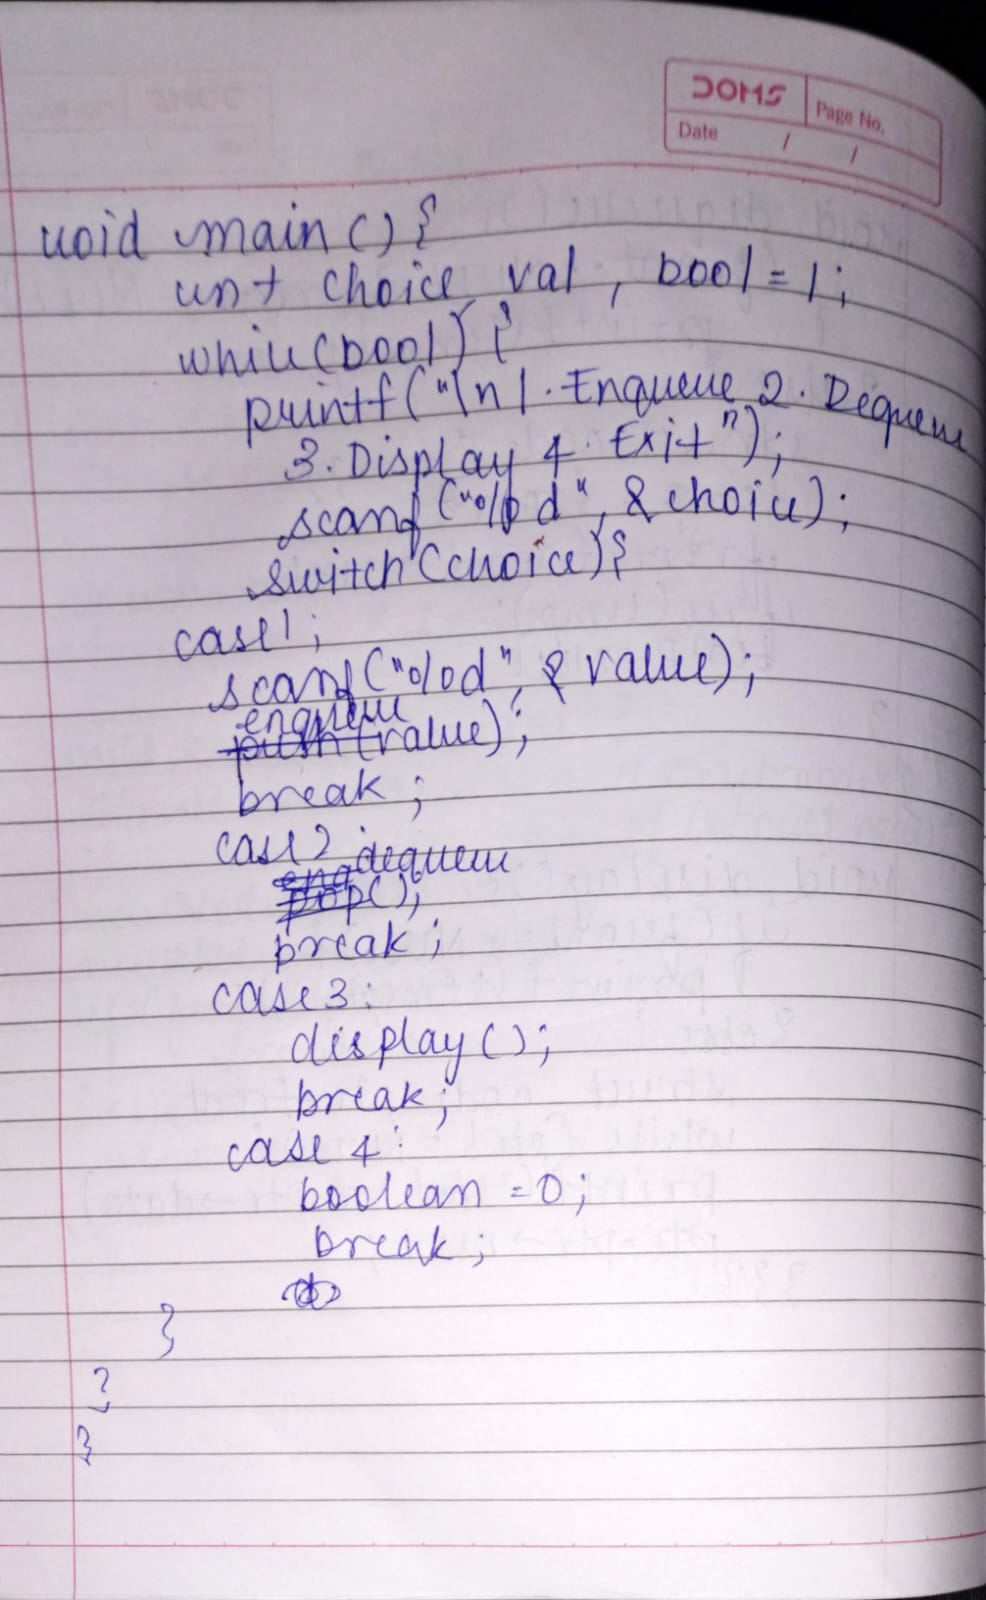 DOMS
Page No.
Date / /
void main() {
int choice, val, bool = 1;
while(bool) {
printf("\n 1. Enqueue 2. Dequeue
3. Display 4. Exit");
scanf("%d", &choice);
switch(choice){
case 1;
scanf("%d", &value);
enqueue
push(value);
break;
case 2 dequeue
enq
pop();
break;
case 3:
display();
break;
case 4:
boolean = 0;
break;
}
}
}